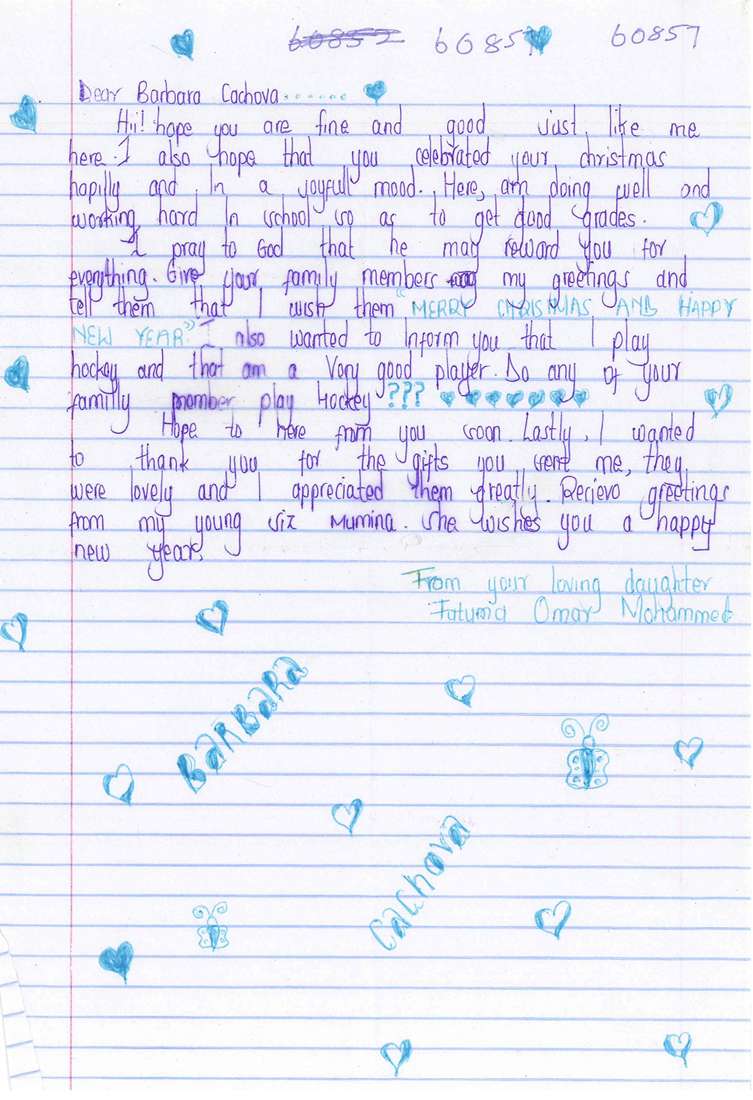 60852 60857 60857
Dear Barbara Cachova.......
Hii! hope you are fine and good just like me
here. I also hope that you celebrated your christmas
hapilly and In a joyfull mood. Here, am doing well and
working hard In school so as to get good grades.
I pray to God that he may reward you for
everything. Give your family members my greetings and
tell them that I wish them "MERRY CHRISTMAS AND HAPPY
NEW YEAR" I also wanted to Inform you that I play
hockey and that am a Very good player. Do any of your
familly member play Hockey ???
Hope to here from you soon. Lastly, I wanted
to thank you for the gifts you sent me, they
were lovely and I appreciated them greatly. Recieve greetings
from my young siz Mumina. She wishes you a happy
new year.
From your loving daughter
Fatuma Omar Mohammed
BARBARA
CACHOVA